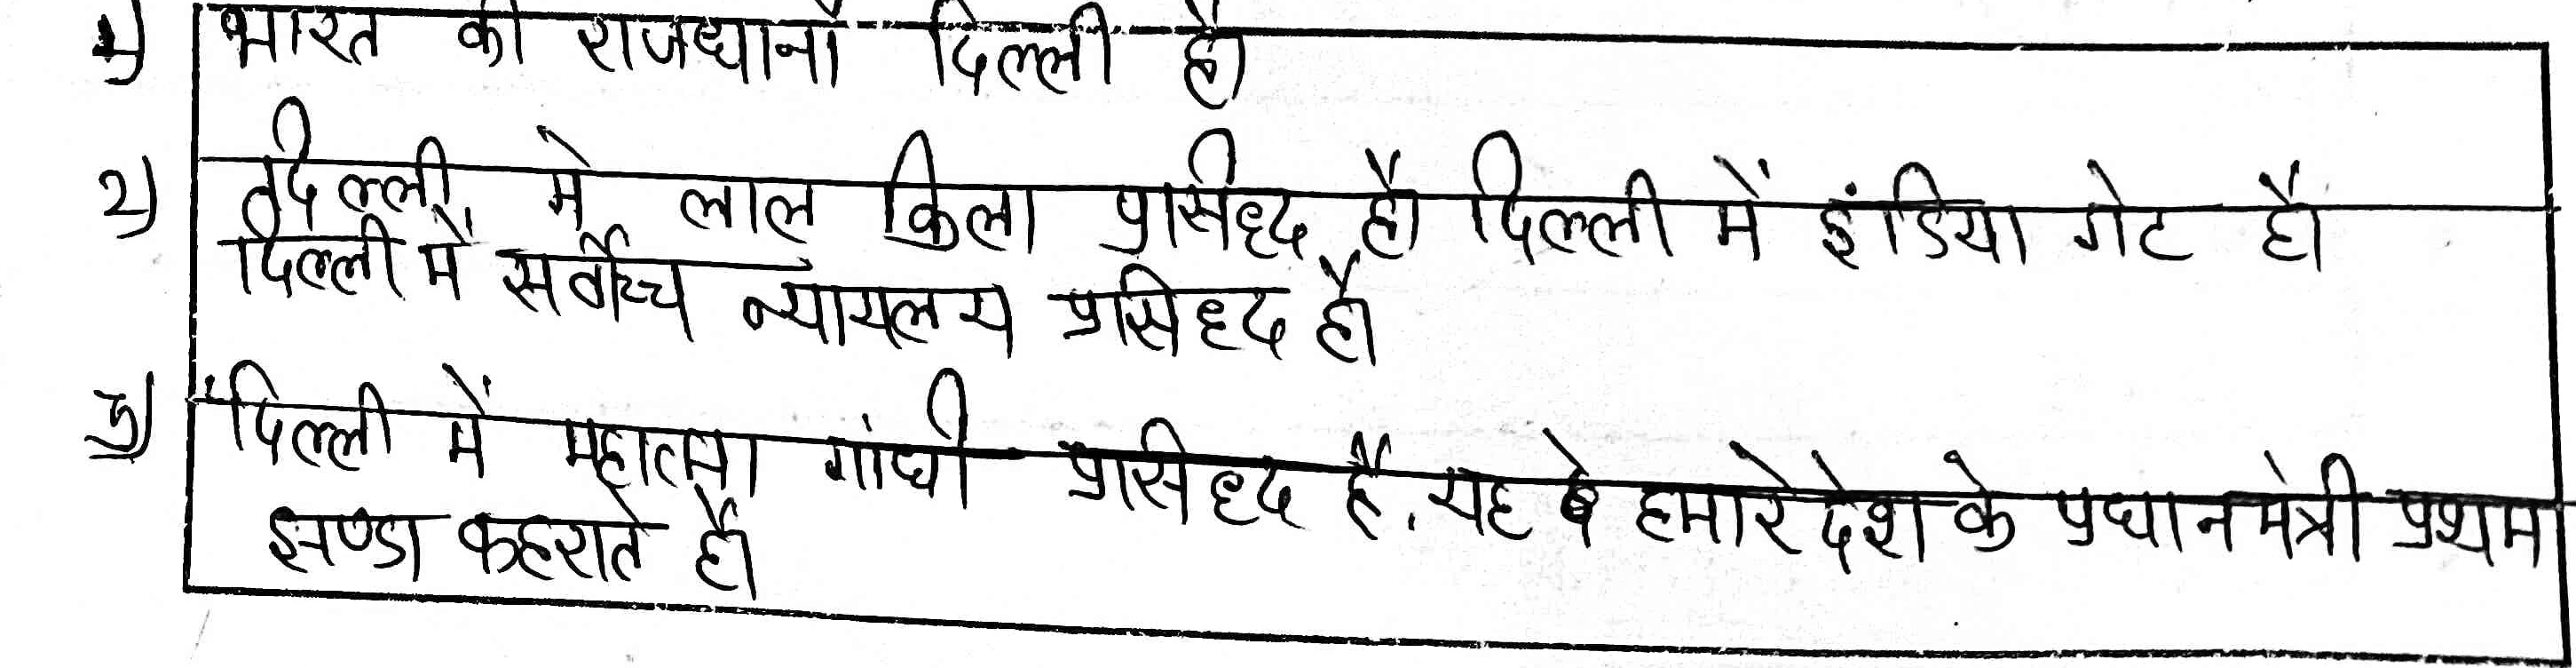 1) भारत की राजधानी दिल्ली है।
2) दिल्ली मे लाल किला प्रसिध्द है। दिल्ली में इंडिया गेट है।
दिल्ली में सर्वोच्च न्यायलय प्रसिध्द है।
3) दिल्ली में महात्मा गांधी प्रसिध्द है. यह हमारे देश के प्रधानमंत्री प्रथम
झण्डा फहराते है।